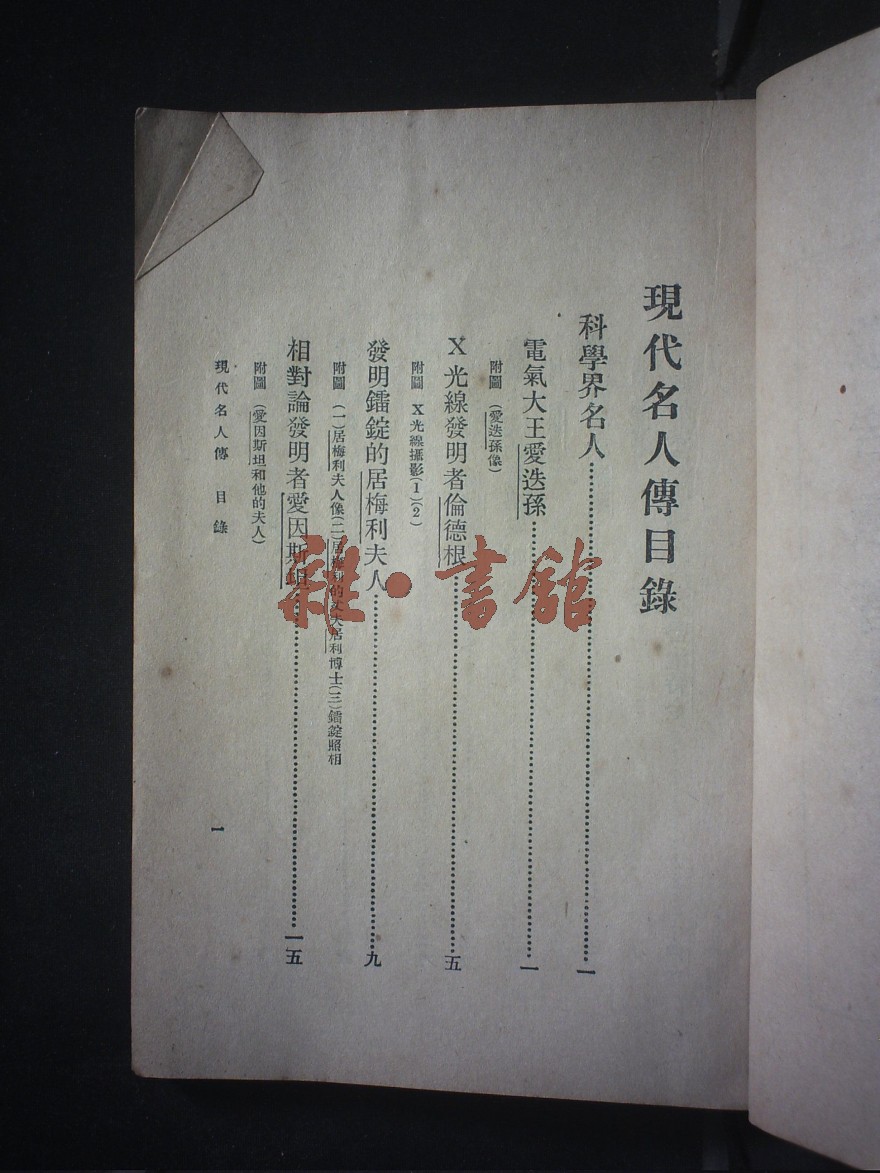 現代名人傳目錄
科學界名人……一
電氣大王愛迭孫……一
附圖（愛迭孫像）
X光線發明者倫德根……五
附圖 X光線攝影(1)(2)
發明鐳錠的居梅利夫人……九
附圖（一）居梅利夫人像（二）居梅利的丈夫居利博士（三）鐳錠照相
相對論發明者愛因斯坦……一五
附圖（愛因斯坦和他的夫人）
現代名人傳 目錄
一
雜·書館